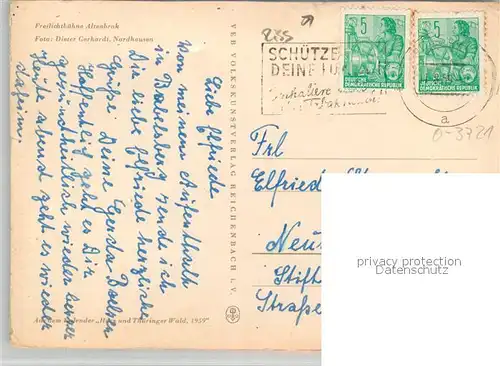 Freilichtbühne Altenbrak
Foto: Dieter Gerhardt, Nordhausen
Liebe Elfriede
Von meinem Aufenthalt
in Babelsberg sende ich
Dir liebe Elfriede herzliche
Grüße Deine Gerda
Hoffentlich geht es Dir
gesundheitlich wieder besser
Heute abend geht es wieder
Aus dem Kalender „Harz und Thüringer Wald, 1959"
VEB VOLKSKUNSTVERLAG REICHENBACH I. V.
SCHÜTZE
DEINE LU
5
DEUTSCHE
DEMOKRATISCHE REPUBLIK
5
DEUTSCHE
DEMOKRATISCHE REPUBLIK
a
0-3721
Frl
Elfriede
Neu
Stift
Straße
privacy protection
datenschutz